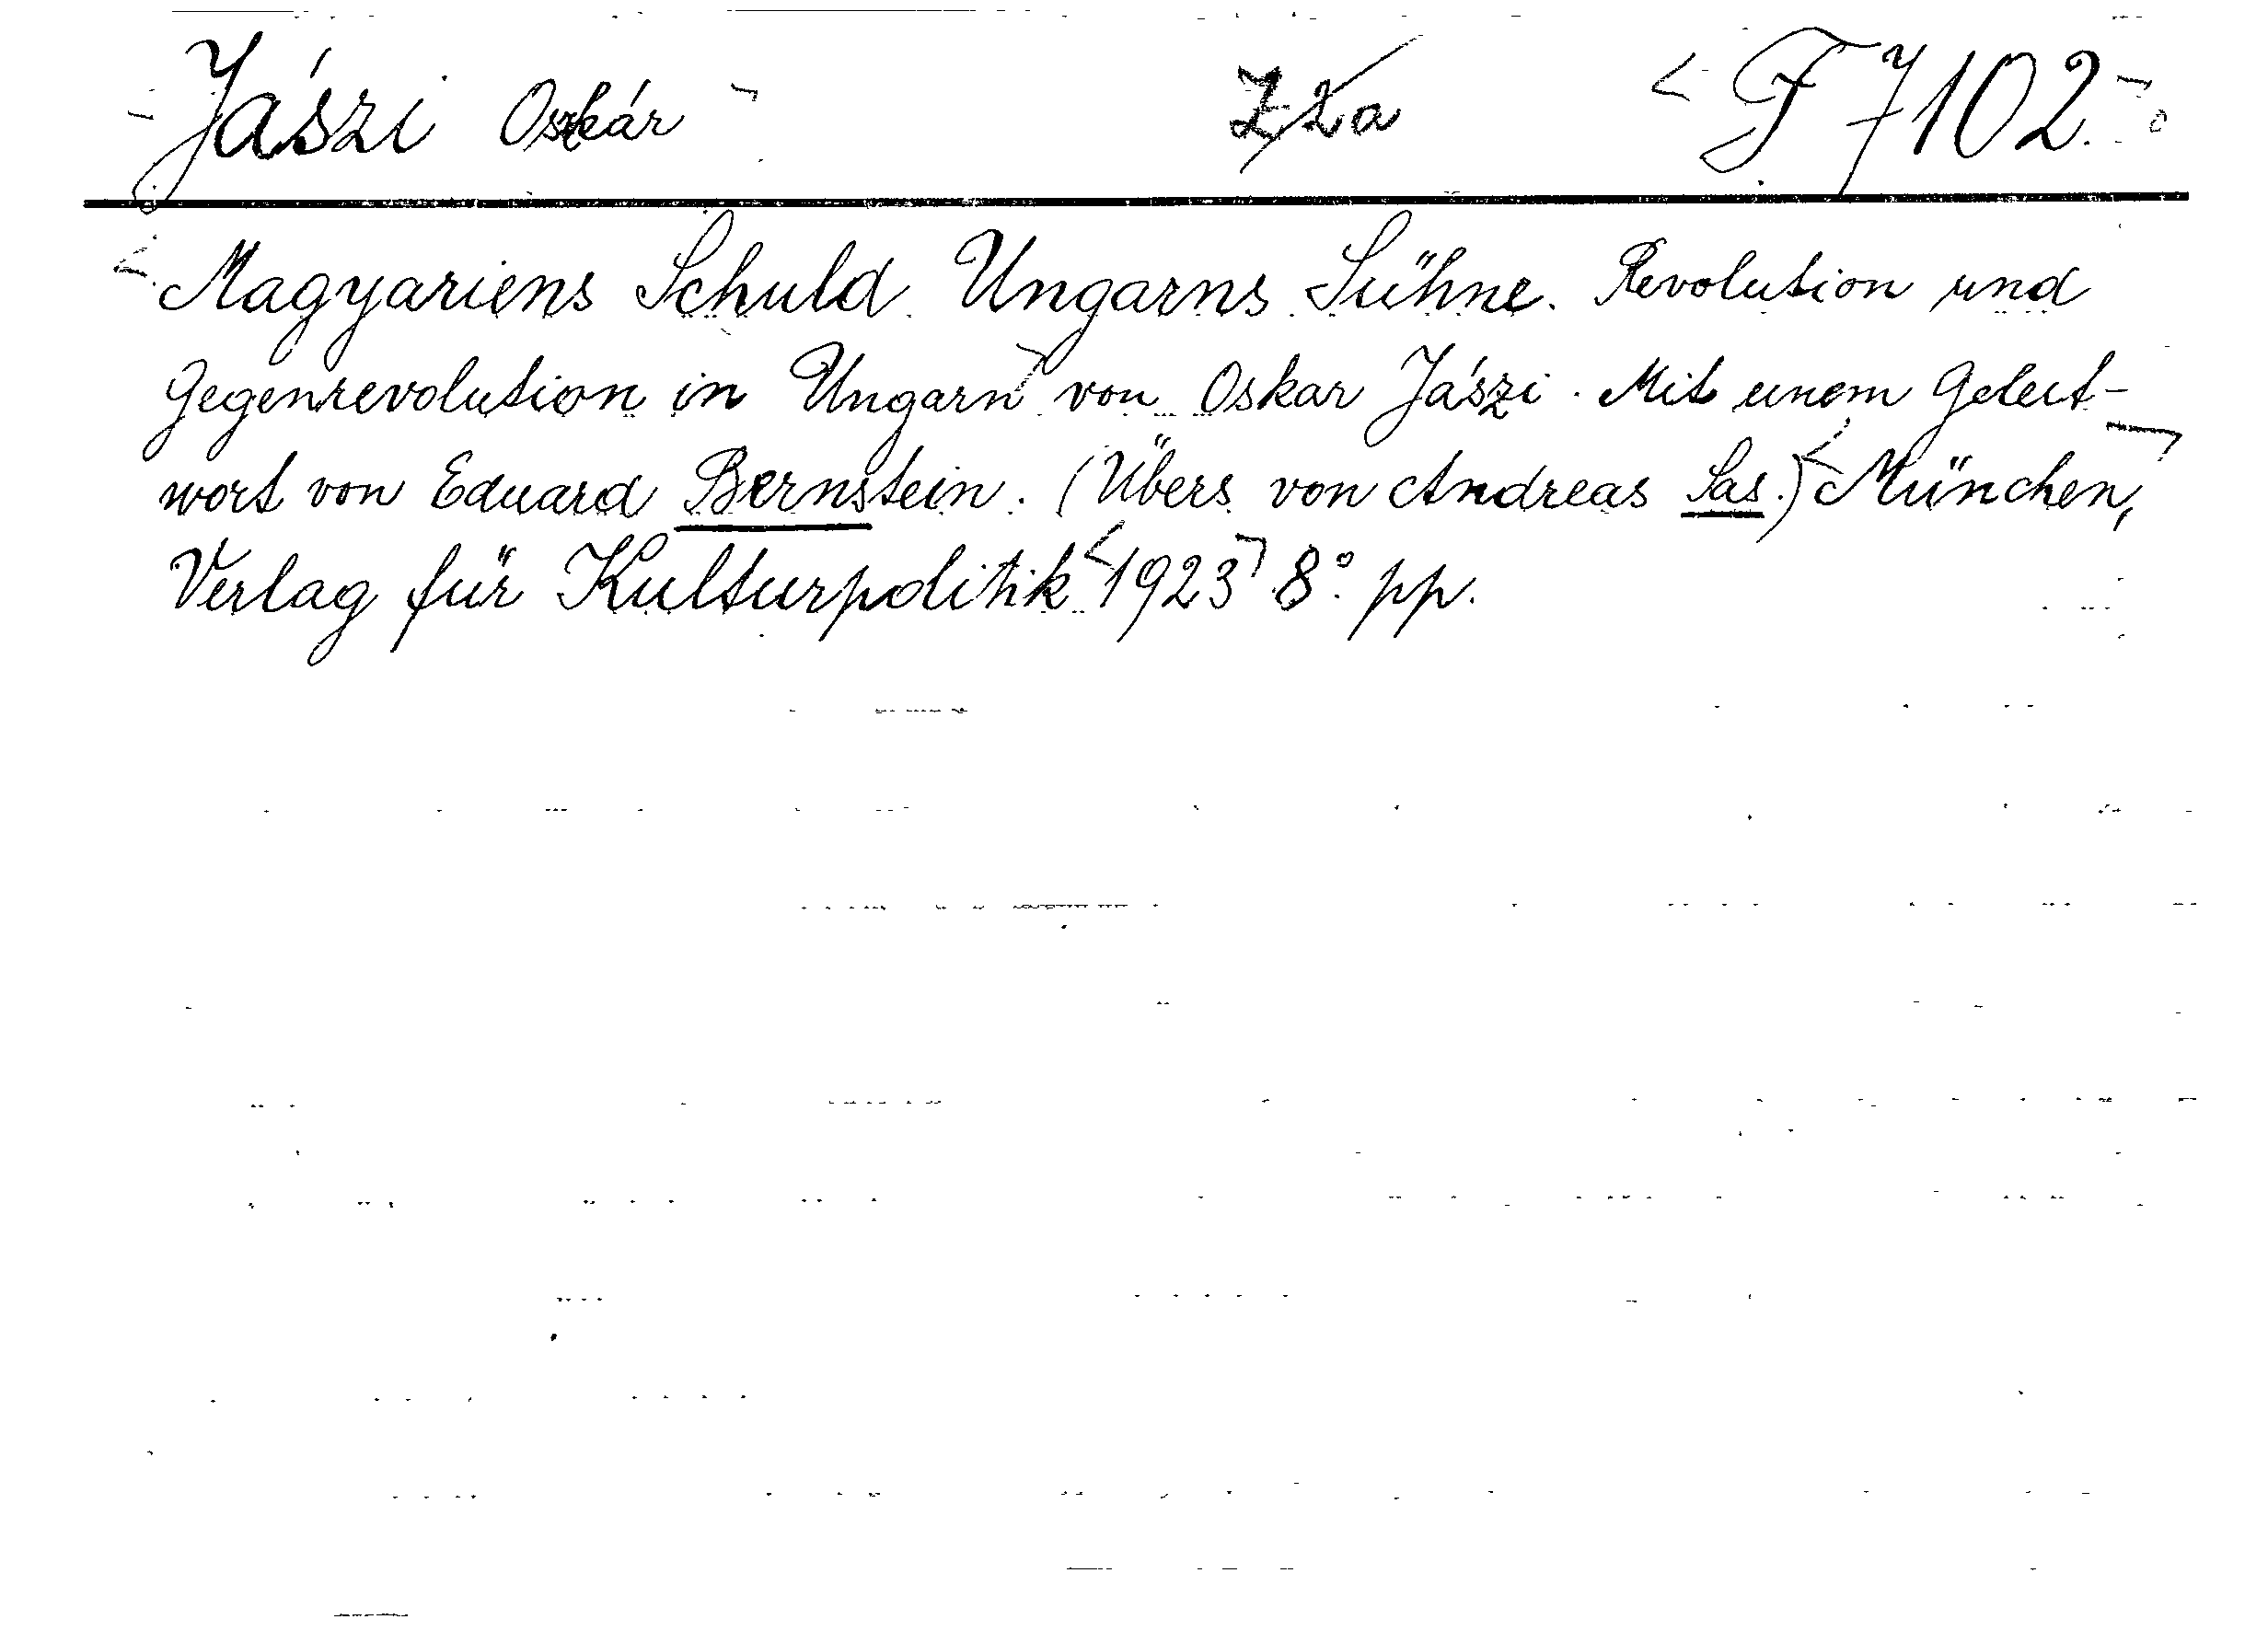 Jászi Oszkár F 7102.
Magyariens Schuld Ungarns Sühne. Revolution und
Gegenrevolution in Ungarn von Oskar Jászi. Mit einem Geleit-
wort von Eduard Bernstein. (Übers von Andreas Sas.) München,
Verlag für Kulturpolitik 1923 8° pp.